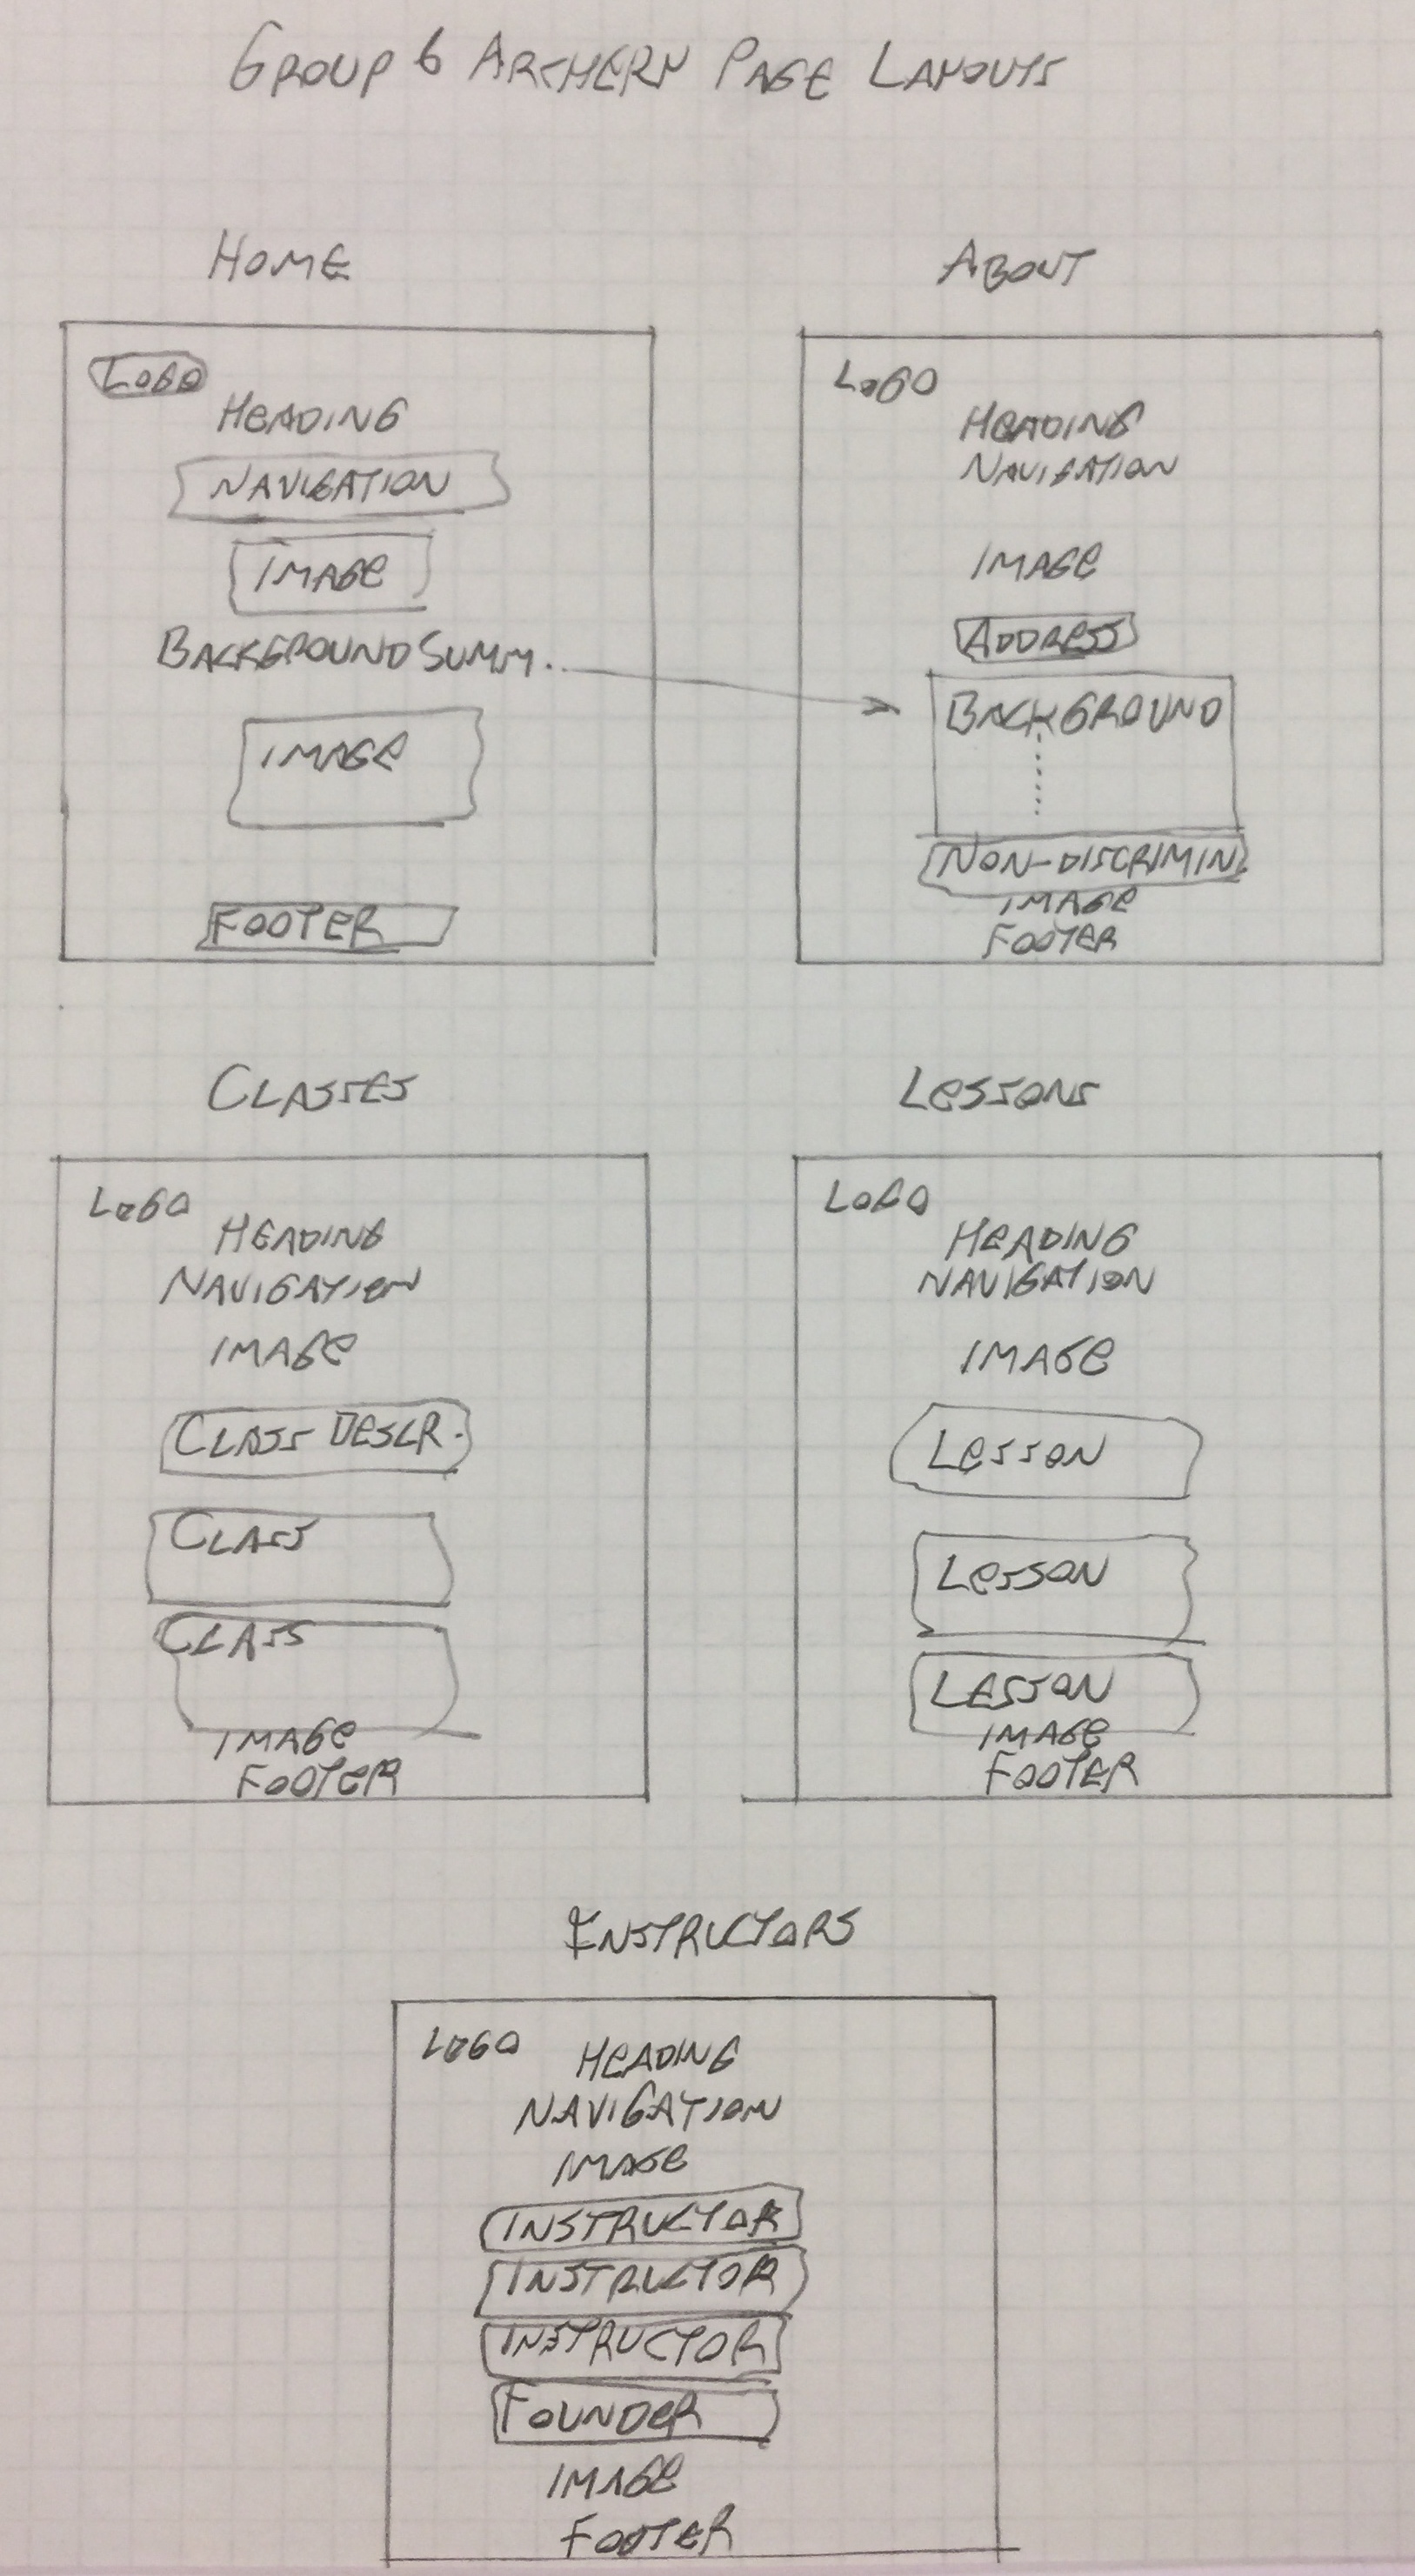 GROUP 6 ARCHERY PAGE LAYOUTS
HOME
LOGO
HEADING
NAVIGATION
IMAGE
BACKGROUND SUMM...
IMAGE
FOOTER
ABOUT
LOGO
HEADING
NAVIGATION
IMAGE
ADDRESS
BACKGROUND
NON-DISCRIMIN.
IMAGE
FOOTER
CLASSES
LOGO
HEADING
NAVIGATION
IMAGE
CLASS DESCR.
CLASS
CLASS
IMAGE
FOOTER
LESSONS
LOGO
HEADING
NAVIGATION
IMAGE
LESSON
LESSON
LESSON
IMAGE
FOOTER
INSTRUCTORS
LOGO HEADING
NAVIGATION
IMAGE
INSTRUCTOR
INSTRUCTOR
INSTRUCTOR
FOUNDER
IMAGE
FOOTER